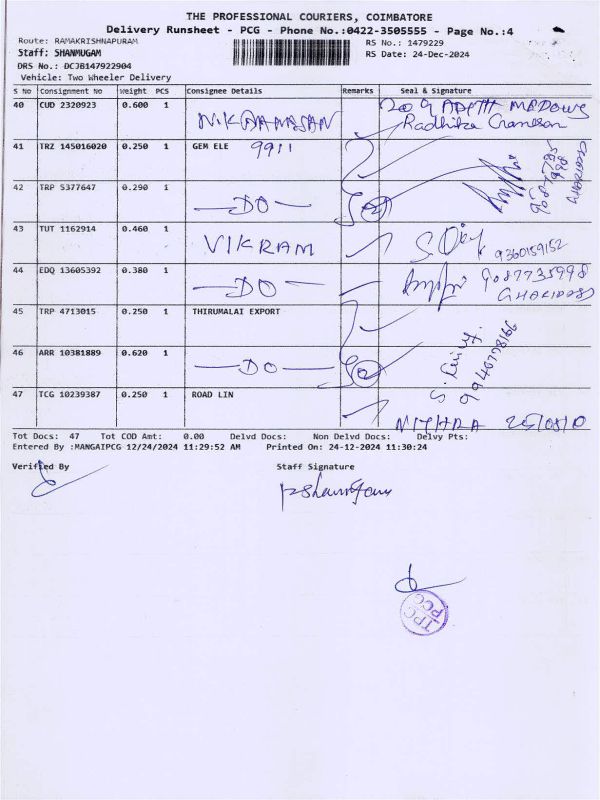 THE PROFESSIONAL COURIERS, COIMBATORE
Delivery Runsheet - PCG - Phone No.:0422-3505555 - Page No.:4
Route: RAMAKRISHNAPURAM RS No.: 1479229
Staff: SHANMUGAM RS Date: 24-Dec-2024
DRS No.: DCJB147922904
Vehicle: Two Wheeler Delivery
S No Consignment No Weight PCS Consignee Details Remarks Seal & Signature
40 CUD 2320923 0.600 1
Radhika
41 TRZ 145016020 0.250 1 GEM ELE 9911
42 TRP 5377647 0.290 1 -DO-
43 TUT 1162914 0.460 1 VIKRAM 9360159152
44 EDQ 13605392 0.380 1 -DO- 9087735998
45 TRP 4713015 0.250 1 THIRUMALAI EXPORT
46 ARR 10381889 0.620 1 -DO-
47 TCG 10239387 0.250 1 ROAD LIN
MITHRA
Tot Docs: 47 Tot COD Amt: 0.00 Delvd Docs: Non Delvd Docs: Delvy Pts:
Entered By :MANGAIPCG 12/24/2024 11:29:52 AM Printed On: 24-12-2024 11:30:24
Verified By Staff Signature
TPC
PCG